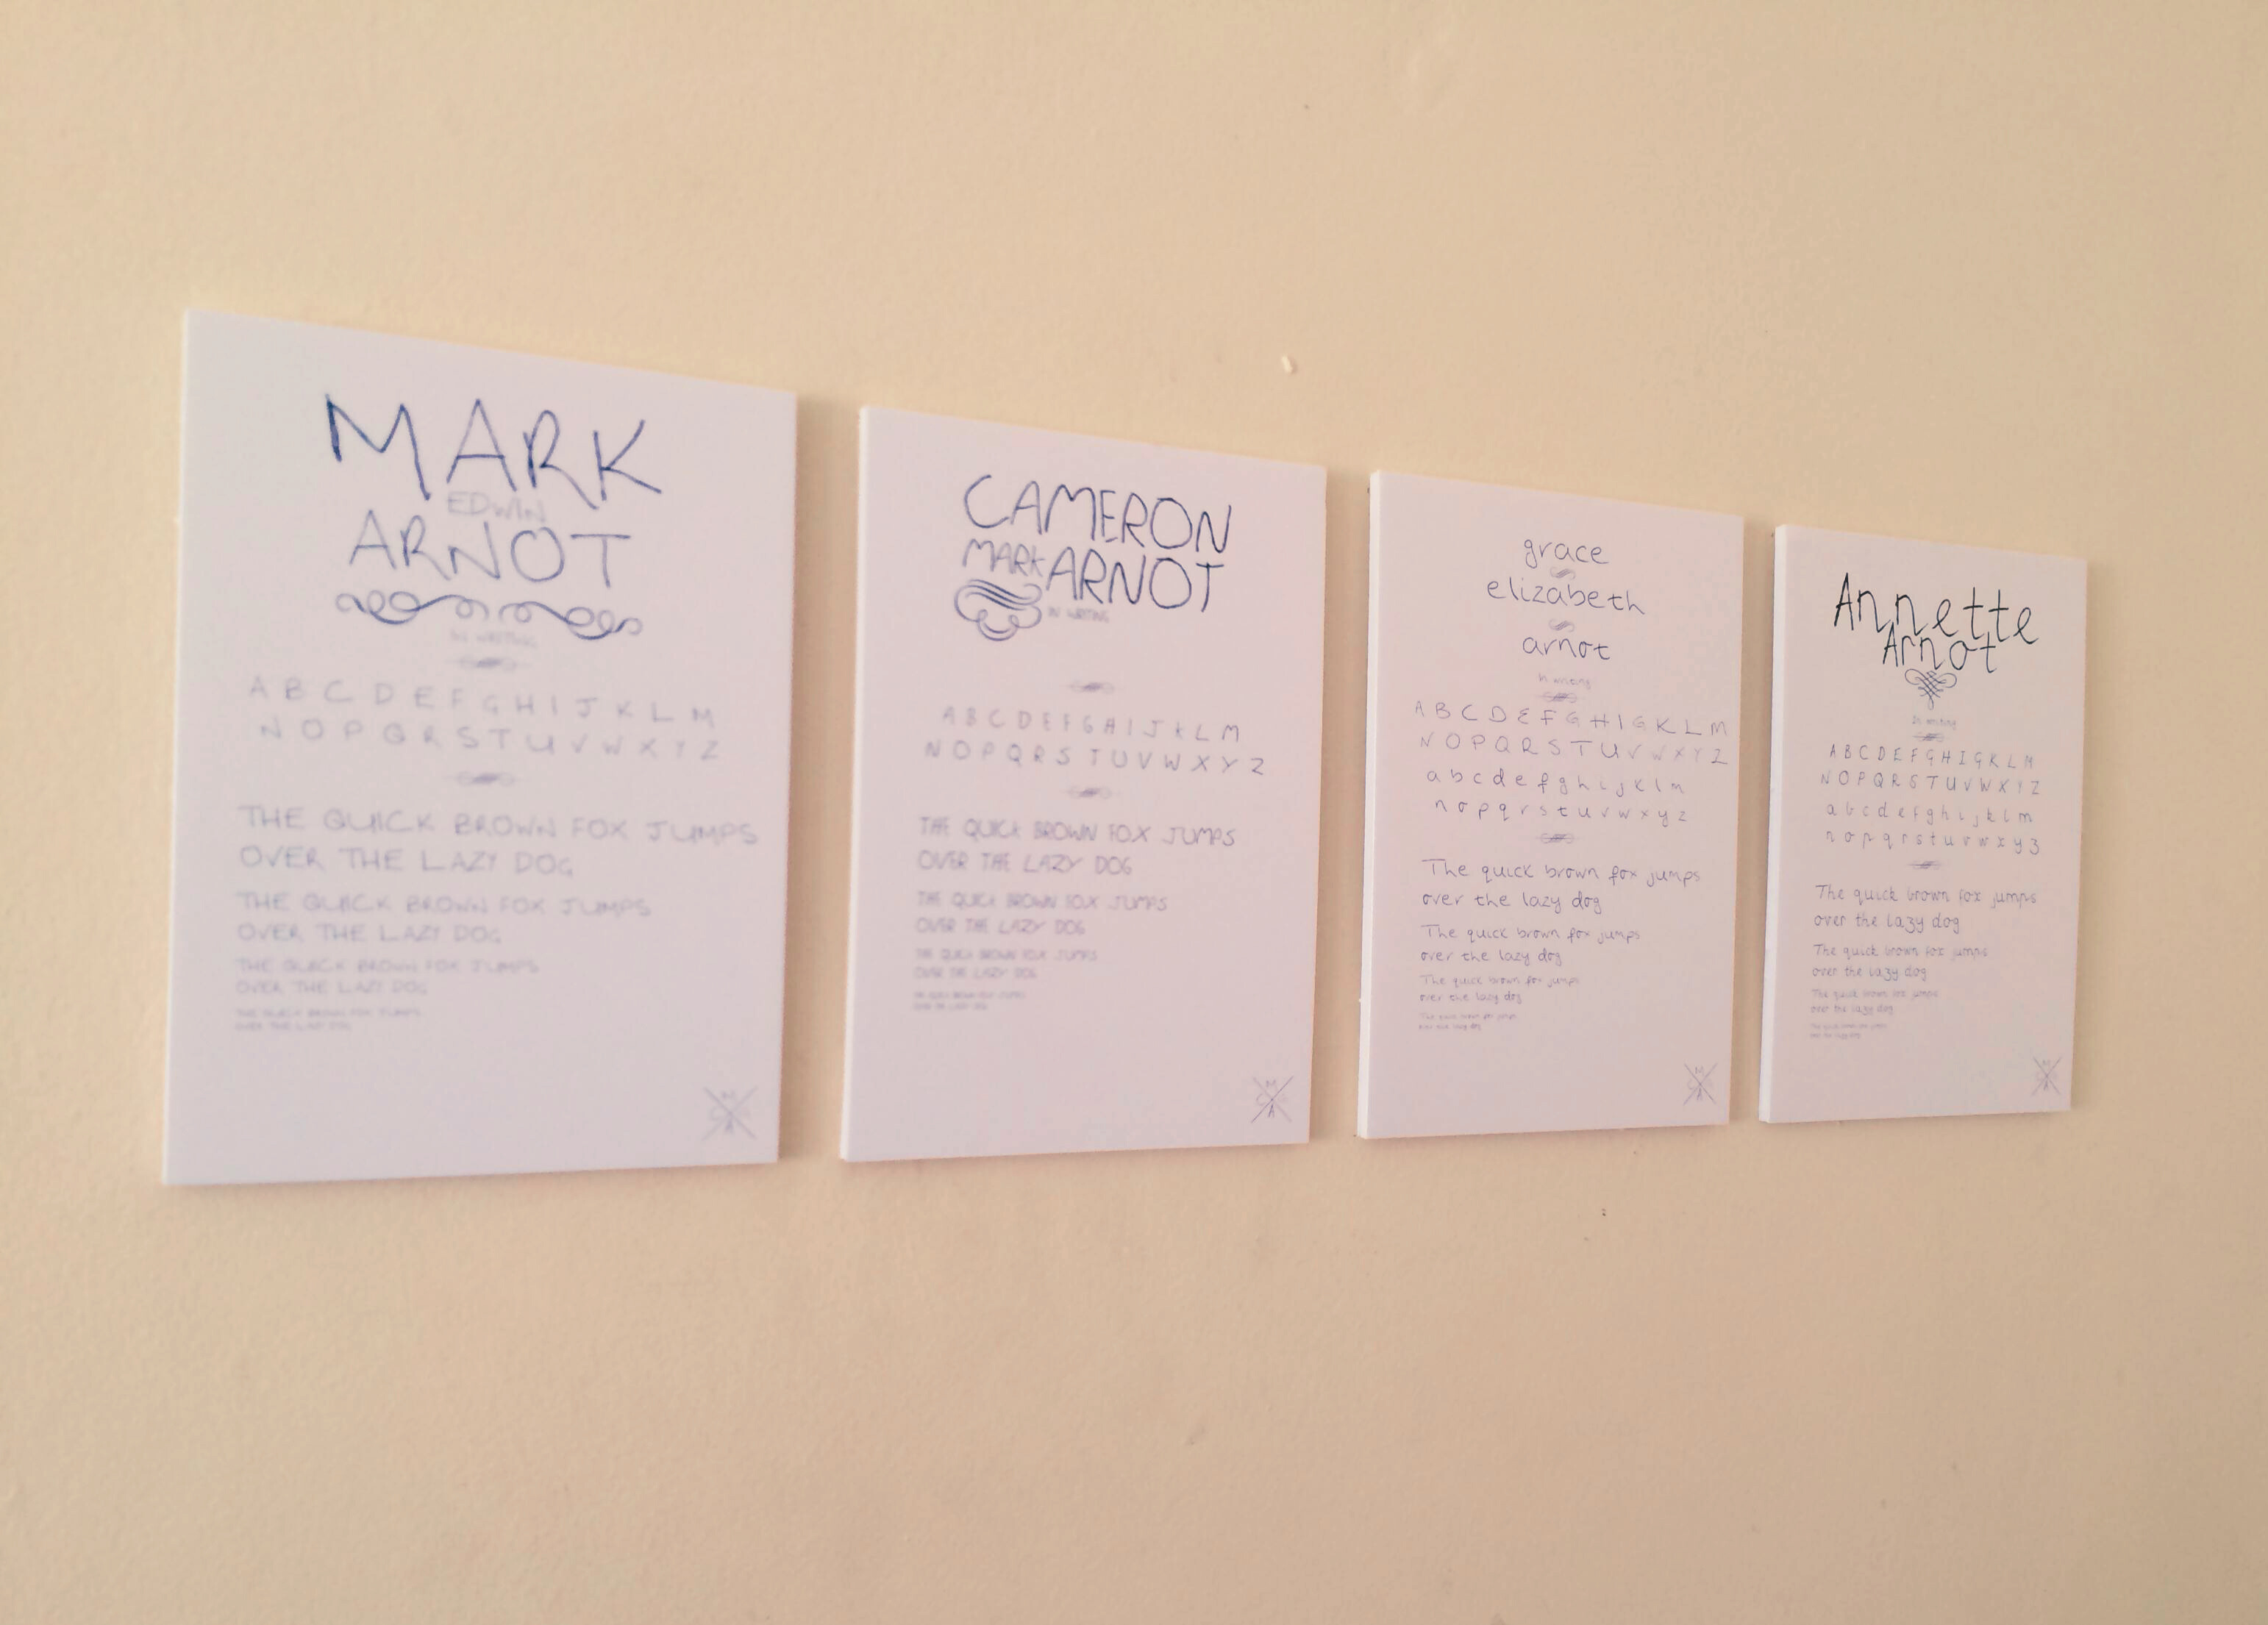 MARK
EDWIN
ARNOT
IN WRITING
A B C D E F G H I J K L M
N O P Q R S T U V W X Y Z
THE QUICK BROWN FOX JUMPS
OVER THE LAZY DOG
THE QUICK BROWN FOX JUMPS
OVER THE LAZY DOG
THE QUICK BROWN FOX JUMPS
OVER THE LAZY DOG
THE QUICK BROWN FOX JUMPS
OVER THE LAZY DOG
CAMERON
MARK ARNOT
IN WRITING
A B C D E F G H I J K L M
N O P Q R S T U V W X Y Z
THE QUICK BROWN FOX JUMPS
OVER THE LAZY DOG
THE QUICK BROWN FOX JUMPS
OVER THE LAZY DOG
THE QUICK BROWN FOX JUMPS
OVER THE LAZY DOG
THE QUICK BROWN FOX JUMPS
OVER THE LAZY DOG
M
A
grace
elizabeth
arnot
In writing
A B C D E F G H I G K L M
N O P Q R S T U V W X Y Z
a b c d e f g h i j k l m
n o p q r s t u v w x y z
The quick brown fox jumps
over the lazy dog
The quick brown fox jumps
over the lazy dog
The quick brown fox jumps
over the lazy dog
The quick brown fox jumps
over the lazy dog
Annette
Arnot
In writing
A B C D E F G H I G K L M
N O P Q R S T U V W X Y Z
a b c d e f g h i j k l m
n o p q r s t u v w x y z
The quick brown fox jumps
over the lazy dog
The quick brown fox jumps
over the lazy dog
The quick brown fox jumps
over the lazy dog
The quick brown fox jumps
over the lazy dog